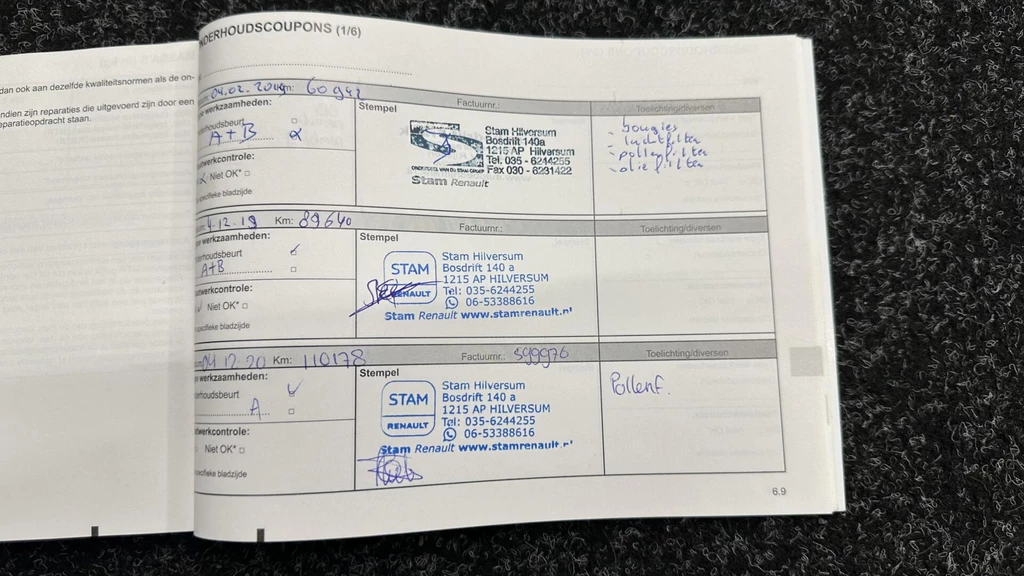 dan ook aan dezelfde kwaliteitsnormen als de on-
ndien zijn reparaties die uitgevoerd zijn door een
eparatieopdracht staan.
NDERHOUDSCOUPONS (1/6)
04.02. Km: 60942
werkzaamheden:
erhoudsbeurt
A+B
werkcontrole:
Niet OK*
specifieke bladzijde
Stempel
Factuurnr.:
Stam Hilversum
Bosdrift 140a
1215 AP Hilversum
Tel. 035 - 6244255
Fax 030 - 6231422
ONDERDEEL VAN DE STAM GROEP
Stam Renault
Toelichting/diversen
bougies
- luchtfilter
- pollenfilter
- olie filter
4.12.19 Km: 89640
werkzaamheden:
erhoudsbeurt
A+B
werkcontrole:
Niet OK*
specifieke bladzijde
Stempel
Factuurnr.:
STAM
RENAULT
Stam Hilversum
Bosdrift 140 a
1215 AP HILVERSUM
Tel: 035-6244255
06-53388616
Stam Renault www.stamrenault.nl
Toelichting/diversen
04 12 20 Km: 110178
werkzaamheden:
erhoudsbeurt
A
werkcontrole:
Niet OK*
specifieke bladzijde
Stempel
Factuurnr.: 599976
STAM
RENAULT
Stam Hilversum
Bosdrift 140 a
1215 AP HILVERSUM
Tel: 035-6244255
06-53388616
Stam Renault www.stamrenault.nl
Toelichting/diversen
Pollenf.
6.9